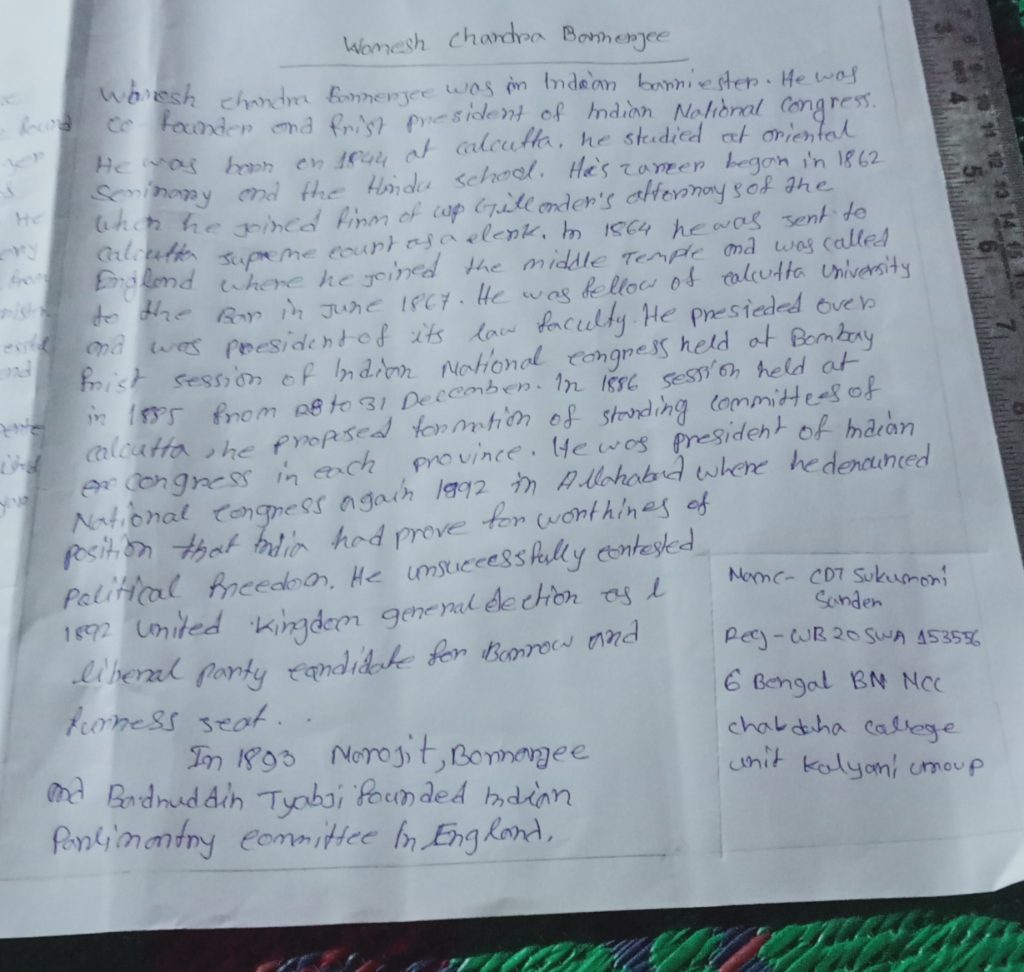 Womesh Chandra Bonnerjee
Womesh chandra Bonnerjee was in Indian banniester. He was
co founder and frist president of Indian National Congress.
He was born on 1844 at calcutta, he studied at oriental
Seminary and the Hindu school. His career began in 1862
when he joined firm of wp Gillender's attornays of the
calcutta supreme court as a clerk. In 1864 he was sent to
England where he joined the middle Temple and was called
to the Bar in June 1867. He was fellow of calcutta University
and was president of its law faculty. He presieded over
frist session of Indian National congress held at Bombay
in 1885 from 28 to 31 December. In 1886 session held at
calcutta, he proposed formation of standing committees of
congress in each province. He was president of Indian
National congress again 1892 in Allahabad where he denounced
position that India had prove for worthines of
Political freedom. He unsuccessfully contested
1892 United kingdom general election as
liberal party candidate for Barrow and
furness seat. . .
In 1893 Narojit, Bonnerjee
and Badruddin Tyabji founded Indian
Parlimantry committee in England.
Name- CDT Sukumoni
Sarder
Reg - WB 20 SWA 153556
6 Bengal BN NCC
chakdaha college
unit Kalyani Group